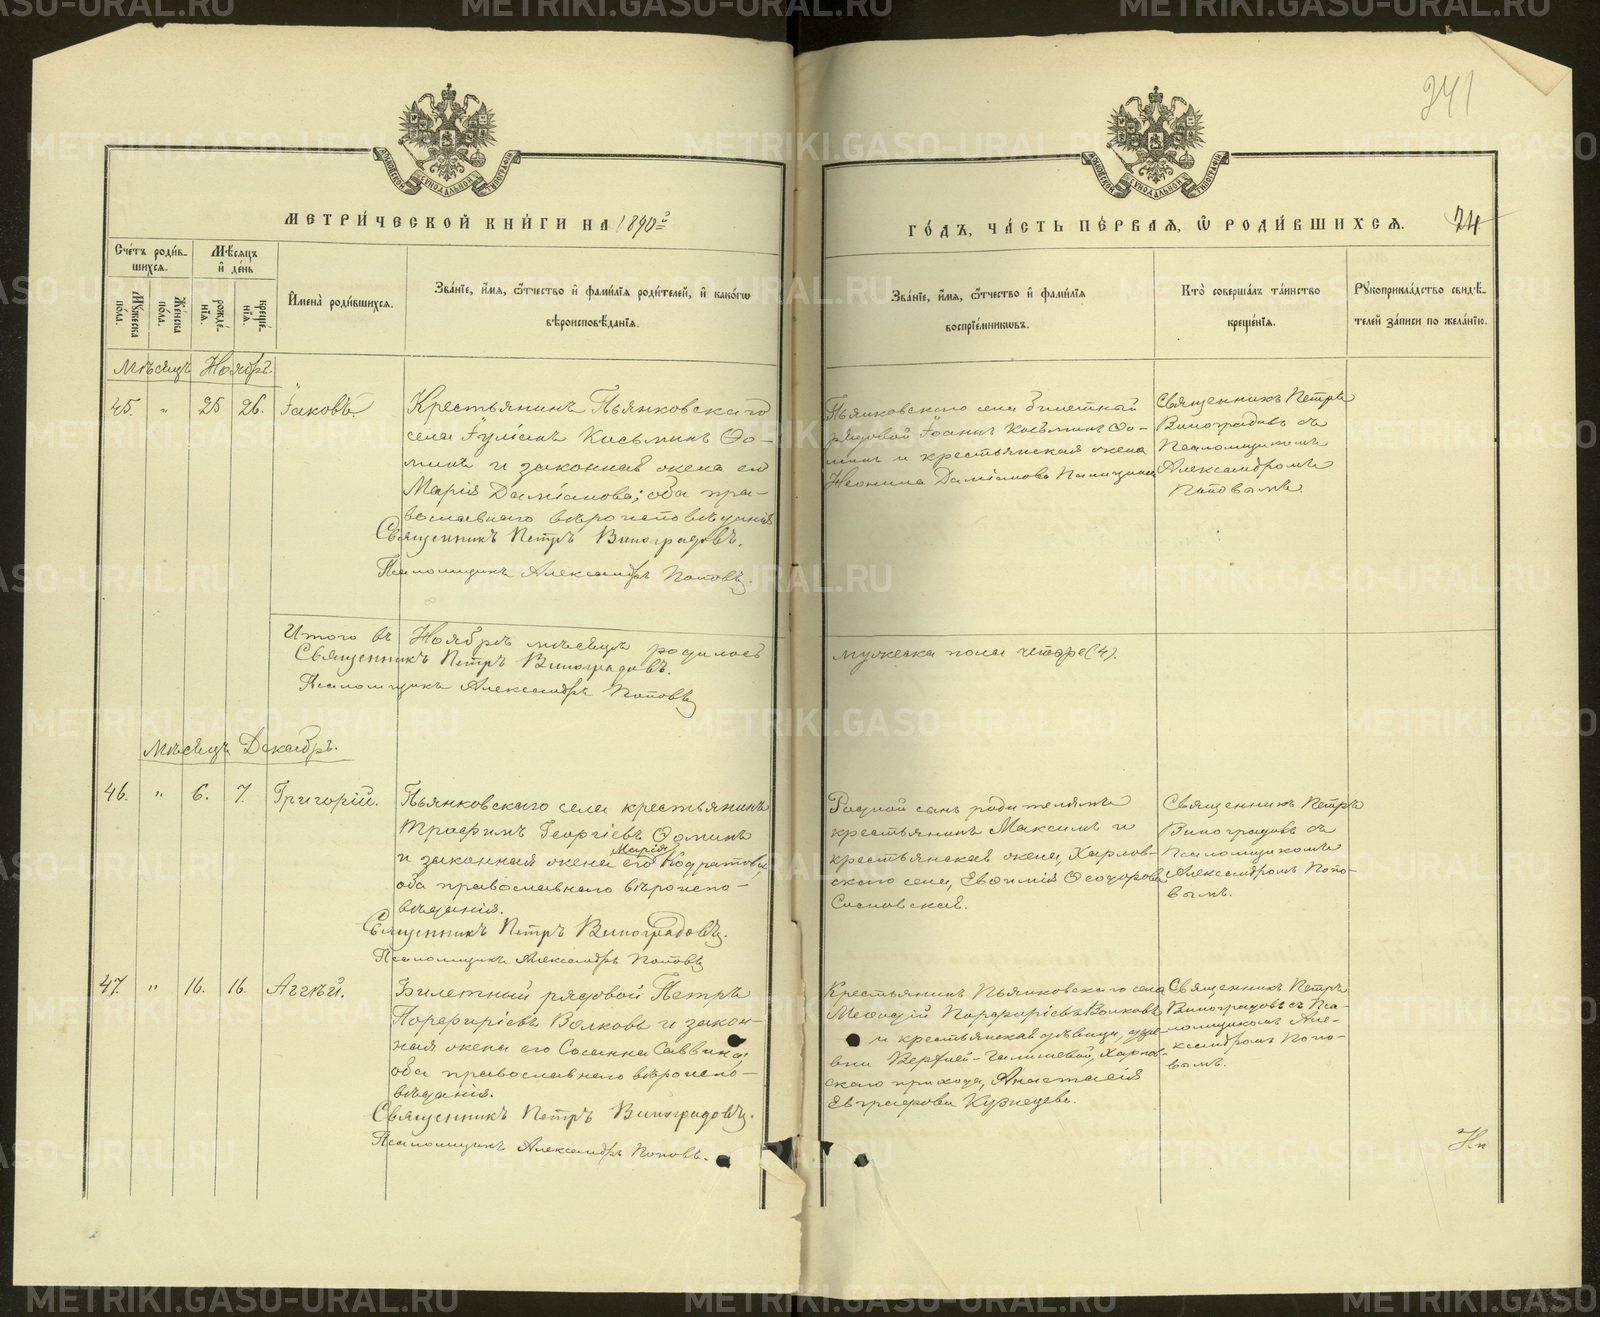 241
МОСКОВСКОЙ СѴНОДАЛЬНОЙ ТИПОГРАФІИ
МОСКОВСКОЙ СѴНОДАЛЬНОЙ ТИПОГРАФІИ
МЕТРИ́ЧЕСКОЙ КНИ́ГИ НА 1890й
ГО́ДЪ, ЧА́СТЬ ПЕ́РВАЯ, Ѡ РОДИ́ВШИХСЯ.
24
Сче́тъ роди́в-
шихся.
Мѣ́сяцъ
и҆ де́нь
Му́жеска
по́ла.
Же́нска
по́ла.
рожде́-
нія.
креще́-
нія.
И҆мена̀ роди́вшихся.
Зва́ніе, и҆́мя, ѻ҆́тчество и҆ фами́лія роди́телей, и҆ како́гѡ
вѣроисповѣ́данія.
Зва́ніе, и҆́мя, ѻ҆́тчество и҆ фами́лія
воспріе́мниковъ.
Кто̀ соверша́лъ та́инство
креще́нія.
Рꙋкоприкла́дство свидѣ́-
телей за́писи по жела́нію.
Мѣсяцъ Ноябрь.
45. " 25 26. Іаковъ.
Крестьянинъ Пьянковскаго
села Іуліанъ Косьминъ Ѳо-
минъ и законная жена его
Марія Даміанова; оба пра-
вославнаго вѣроисповѣданія
Священникъ Петръ Виноградовъ.
Псаломщикъ Александръ Поповъ.
Пьянковскаго села билетный
рядовой Іоаннъ Косьминъ Ѳо-
минъ и крестьянская жена
Неонила Даміанова
Священникъ Петръ
Виноградовъ съ
Псаломщикомъ
Александромъ
Поповымъ.
Итого въ Ноябрѣ мѣсяцѣ родилось
мужеска пола четыре (4).
Священникъ Петръ Виноградовъ.
Псаломщикъ Александръ Поповъ
Мѣсяцъ Декабрь.
46. " 6. 7. Григорій.
Пьянковскаго села крестьянинъ
Трофимъ Георгіевъ Ѳоминъ
и законная жена его Марія Кодратова,
оба православнаго вѣроиспо-
вѣданія.
Священникъ Петръ Виноградовъ.
Псаломщикъ Александръ Поповъ
Родной сынъ родителямъ
крестьянинъ Максимъ и
крестьянская жена, Харлов-
скаго села, Евѳимія Ѳеодорова
Сосновская.
Священникъ Петръ
Виноградовъ съ
Псаломщикомъ
Александромъ Попо-
вымъ.
47. " 16. 16. Аггѣй.
Билетный рядовой Петръ
Порфиріевъ Волковъ и закон-
ная жена его Сосанна Саввина;
оба православнаго вѣроиспо-
вѣданія.
Священникъ Петръ Виноградовъ.
Псаломщикъ Александръ Поповъ.
Крестьянинъ Пьянковскаго села
Меѳодій Порфиріевъ Волковъ
и крестьянская дѣвица, дере-
вни Верхней-Галишевой, Харлов-
скаго прихода, Анастасія
Евграфова Кузнецова.
Священникъ Петръ
Виноградовъ съ Пса-
ломщикомъ Але-
ксандромъ Попо-
вымъ.
METRIKI.GASO-URAL.RU